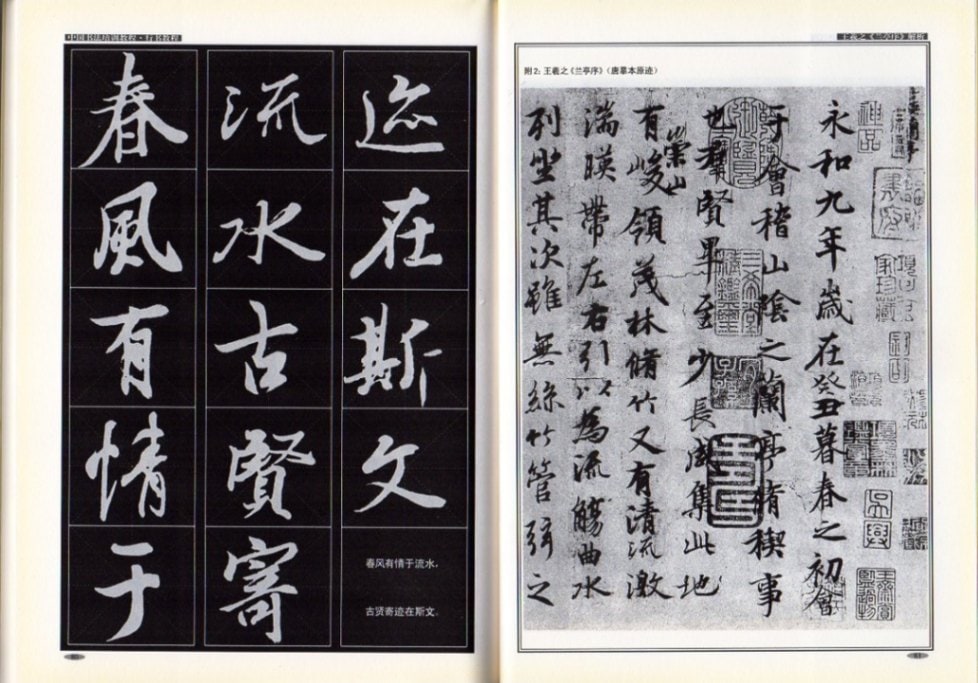 中国书法培训教程·行书教程
春風有情于
流水古賢寄
迹在斯文
春风有情于流水,
古贤寄迹在斯文。
王羲之《兰亭序》解析
附2:王羲之《兰亭序》(唐摹本原迹)
永和九年歲在癸丑暮春之初會
于會稽山陰之蘭亭脩稧事
也羣賢畢至少長咸集此地
有崇山峻領茂林脩竹又有清流激
湍暎帶左右引以為流觴曲水
列坐其次雖無絲竹管弦之